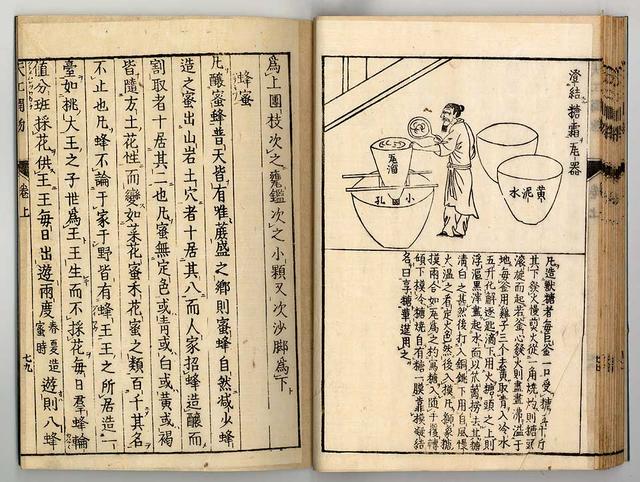 澄結糖霜瓦器
黃泥水
瓦溜
小圓孔
凡造獸糖者每巨釜一口受糖五十斤
其下發火慢煎火從一角燒灼則糖頭
滾旋而起若釜心發火則盡盡沸溢于
地每釜用雞子三個去黃取青入冷水
五升化解逐匙滴下用火糖頭之上則
浮漚黑滓盡起水面以笊籬撈去其糖
清白之甚然後打入銅銚下用自風慢
火溫之看定火色然後入模凡獅象糖
模兩合如瓦爲之杓寫糖入隨手覆轉
傾下模冷糖燒自有糖一膜靠模凝結
名曰享糖華筵用之
爲上團枝次之甕鑑次之小顆又次沙脚爲下
蜂蜜
凡釀蜜蜂普天皆有唯蔗盛之鄉則蜜蜂自然減少蜂
造之蜜出山岩土穴者十居其八而人家招蜂造釀而
割取者十居其二也凡蜜無定色或青或白或黃或褐
皆隨方土花性而變如菜花蜜禾花蜜之類百千其名
不止也凡蜂不論于家于野皆有蜂王王之所居造一
臺如桃大王之子世爲王王生而不採花每日群蜂輪
值分班採花供王王每日出遊兩度春夏造蜜時遊則八蜂
天工開物 卷上 七九